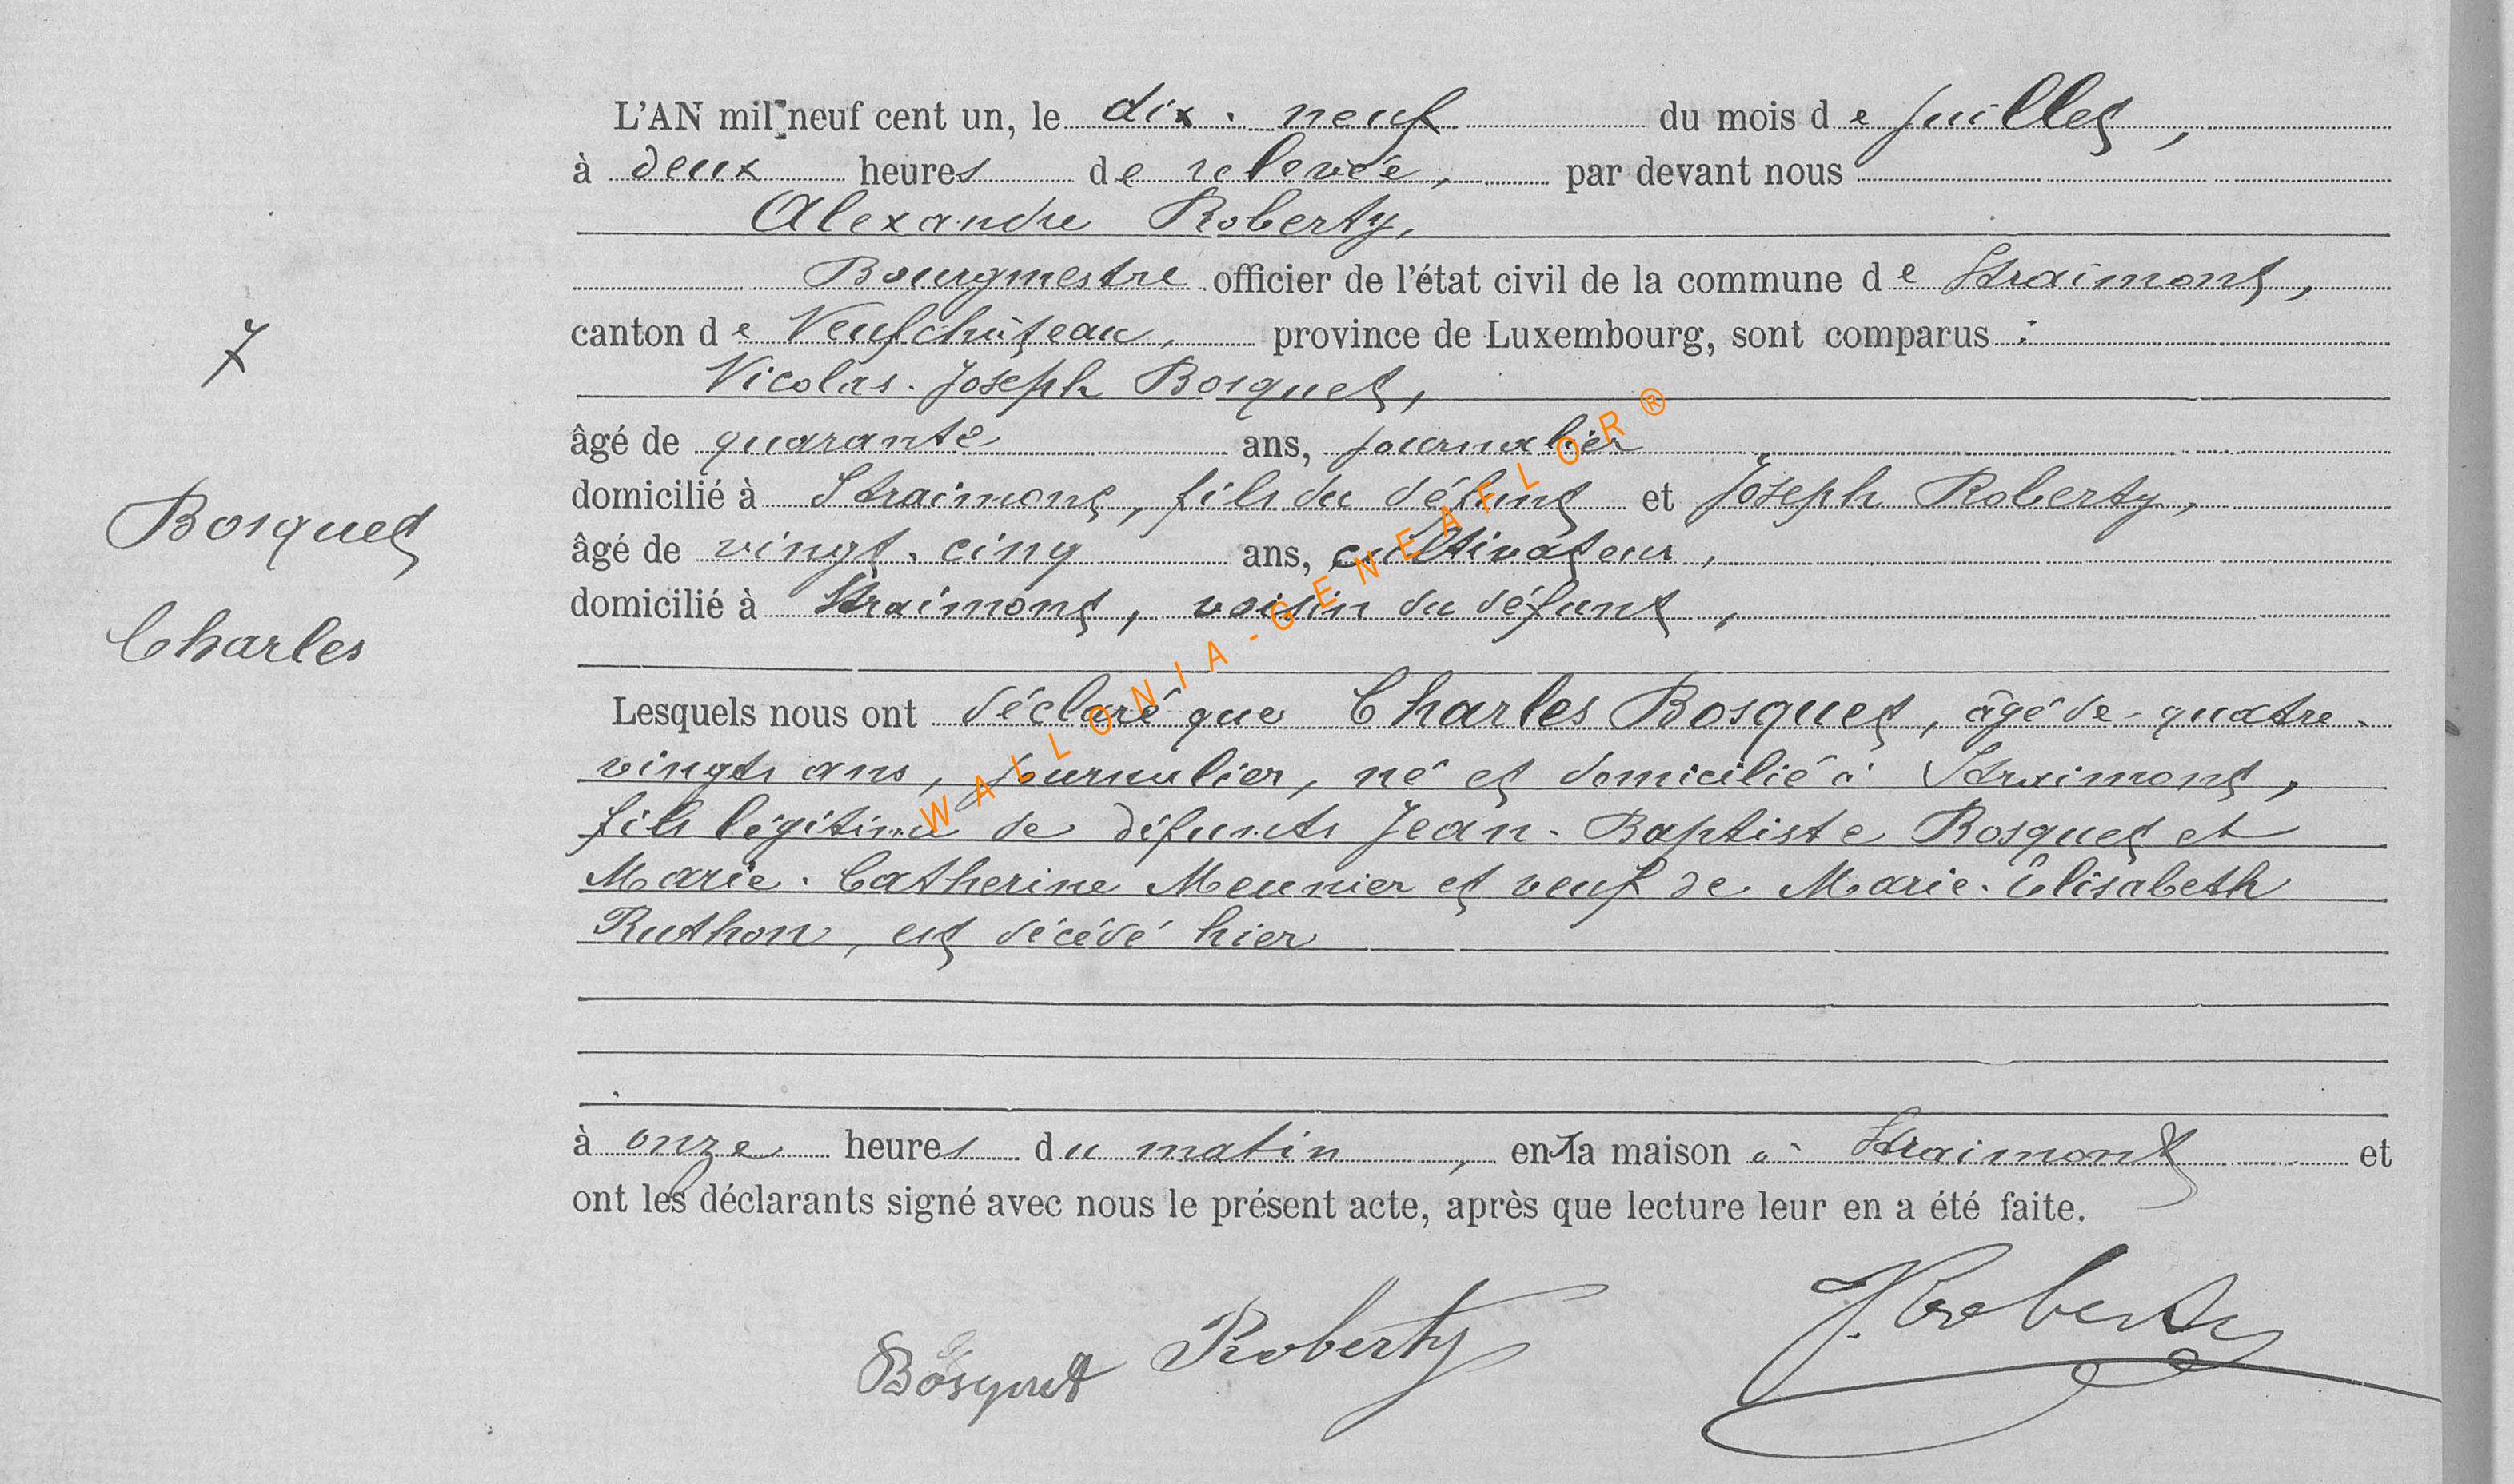 L'AN mil neuf cent un, le dix-neuf du mois de juillet,
à deux heures de relevée, par devant nous
Alexandre Roberty,
Bourgmestre officier de l'état civil de la commune de Straimont,
canton de Neufchâteau, province de Luxembourg, sont comparus :
7
Nicolas-Joseph Bosquet,
âgé de quarante ans, journalier,
domicilié à Straimont, fils du défunt et Joseph Roberty,
Bosquet
âgé de vingt-cinq ans, cultivateur,
domicilié à Straimont, voisin du défunt,
Charles
Lesquels nous ont déclaré que Charles Bosquet, âgé de quatre-
vingts ans, journalier, né et domicilié à Straimont,
fils légitime de défunts Jean-Baptiste Bosquet et
Marie-Catherine Meunier et veuf de Marie-Élisabeth
Ruthon, est décédé hier
à onze heures du matin, en la maison à Straimont et
ont les déclarants signé avec nous le présent acte, après que lecture leur en a été faite.
Bosquet Roberty J. Roberty
WALLONIA-GENEAFLOR®